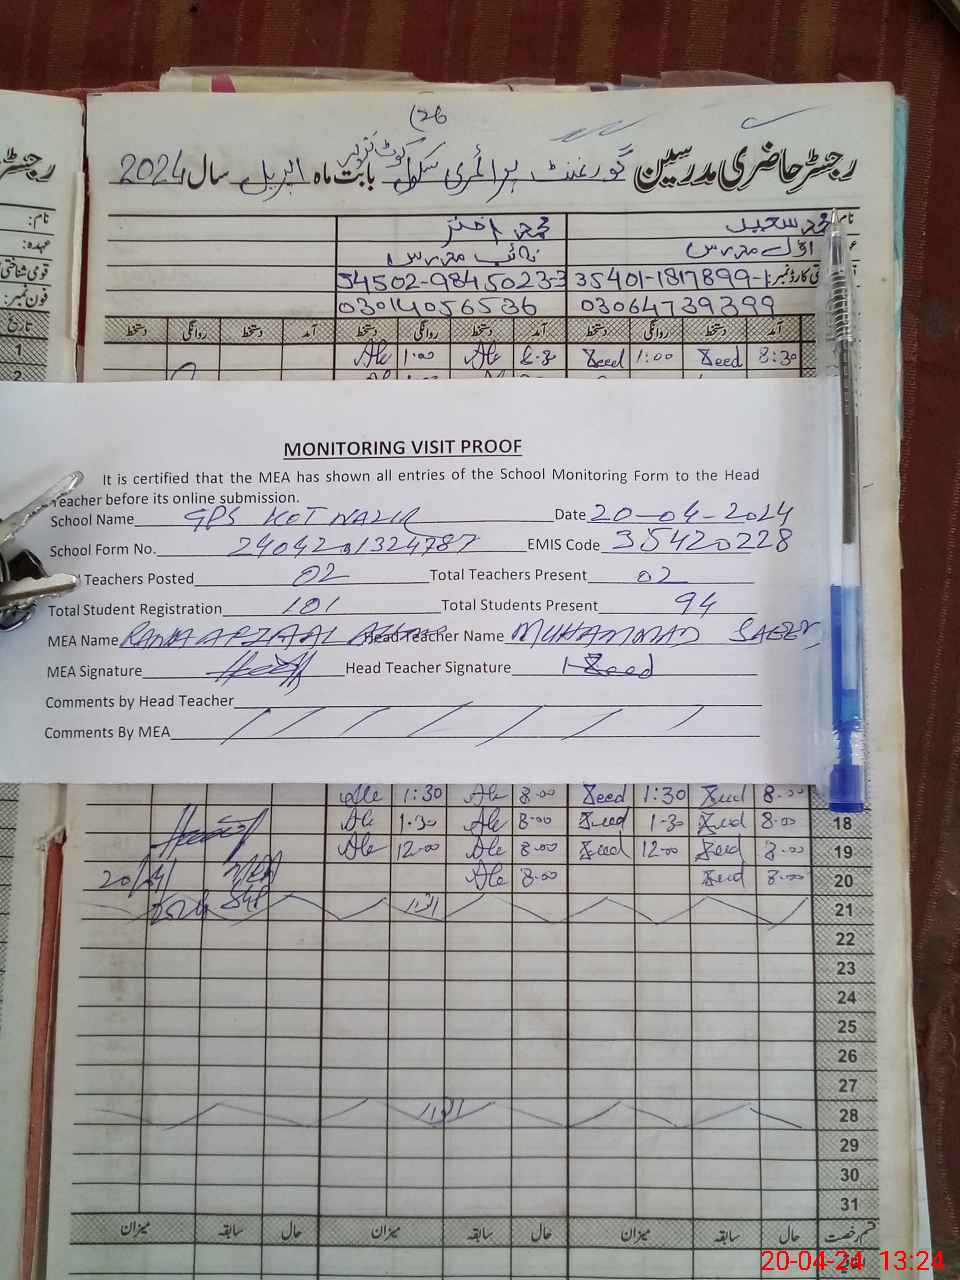 (26
رجسٹر حاضری مدرسین گورنمنٹ پرائمری سکول کوٹ نذیر بابت ماہ اپریل سال 2024
نام: محمد سعید محمد اختر
اول مدرس نائب مدرس
35401-1817899-1 34502-9845023-3
03064739399 03014056536
آمد دستخط روانگی دستخط آمد دستخط روانگی دستخط آمد دستخط روانگی دستخط
8:30 Saeed 1:00 Saeed 8.30 1:00
MONITORING VISIT PROOF
It is certified that the MEA has shown all entries of the School Monitoring Form to the Head
Teacher before its online submission.
School Name GPS KOT NAZIR Date 20-04-2024
School Form No. 2404201324787 EMIS Code 35420228
Teachers Posted 02 Total Teachers Present 02
Total Student Registration 101 Total Students Present 94
MEA Name RANA AFZAAL Head Teacher Name MUHAMMAD SAEED
MEA Signature Head Teacher Signature Saeed
Comments by Head Teacher
Comments By MEA
8.00 Saeed 1:30 Saeed 8.00 1:30
18 8.00 Saeed 1.30 Saeed 8.00 1.30
19 8.00 Saeed 12.00 Saeed 8.00 12.00
20 8.00 Saeed 8.00 20/4/ MEA
21 اتوار 2024 848
22
23
24
25
26
27
28 اتوار
29
30
31
قسم رخصت حال سابقہ میزان حال سابقہ میزان حال سابقہ میزان
رجسٹر
نام:
عہدہ:
قومی شناختی
فون نمبر:
تاریخ
1
2
20-04-24 13:24